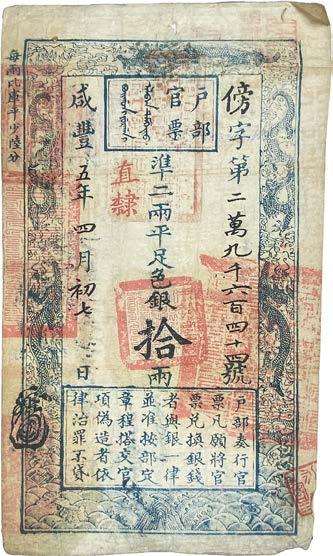 傍字第二萬九千六百四十四號
戶部
官票
準二兩平足色銀拾兩
直隸
咸豐五年四月初七日
每兩比庫平少陸分
戶部奏行官
票凡願將官
票兌換銀錢
者與銀一律
並准按部定
章程搭交官
項偽造者依
律治罪不貸